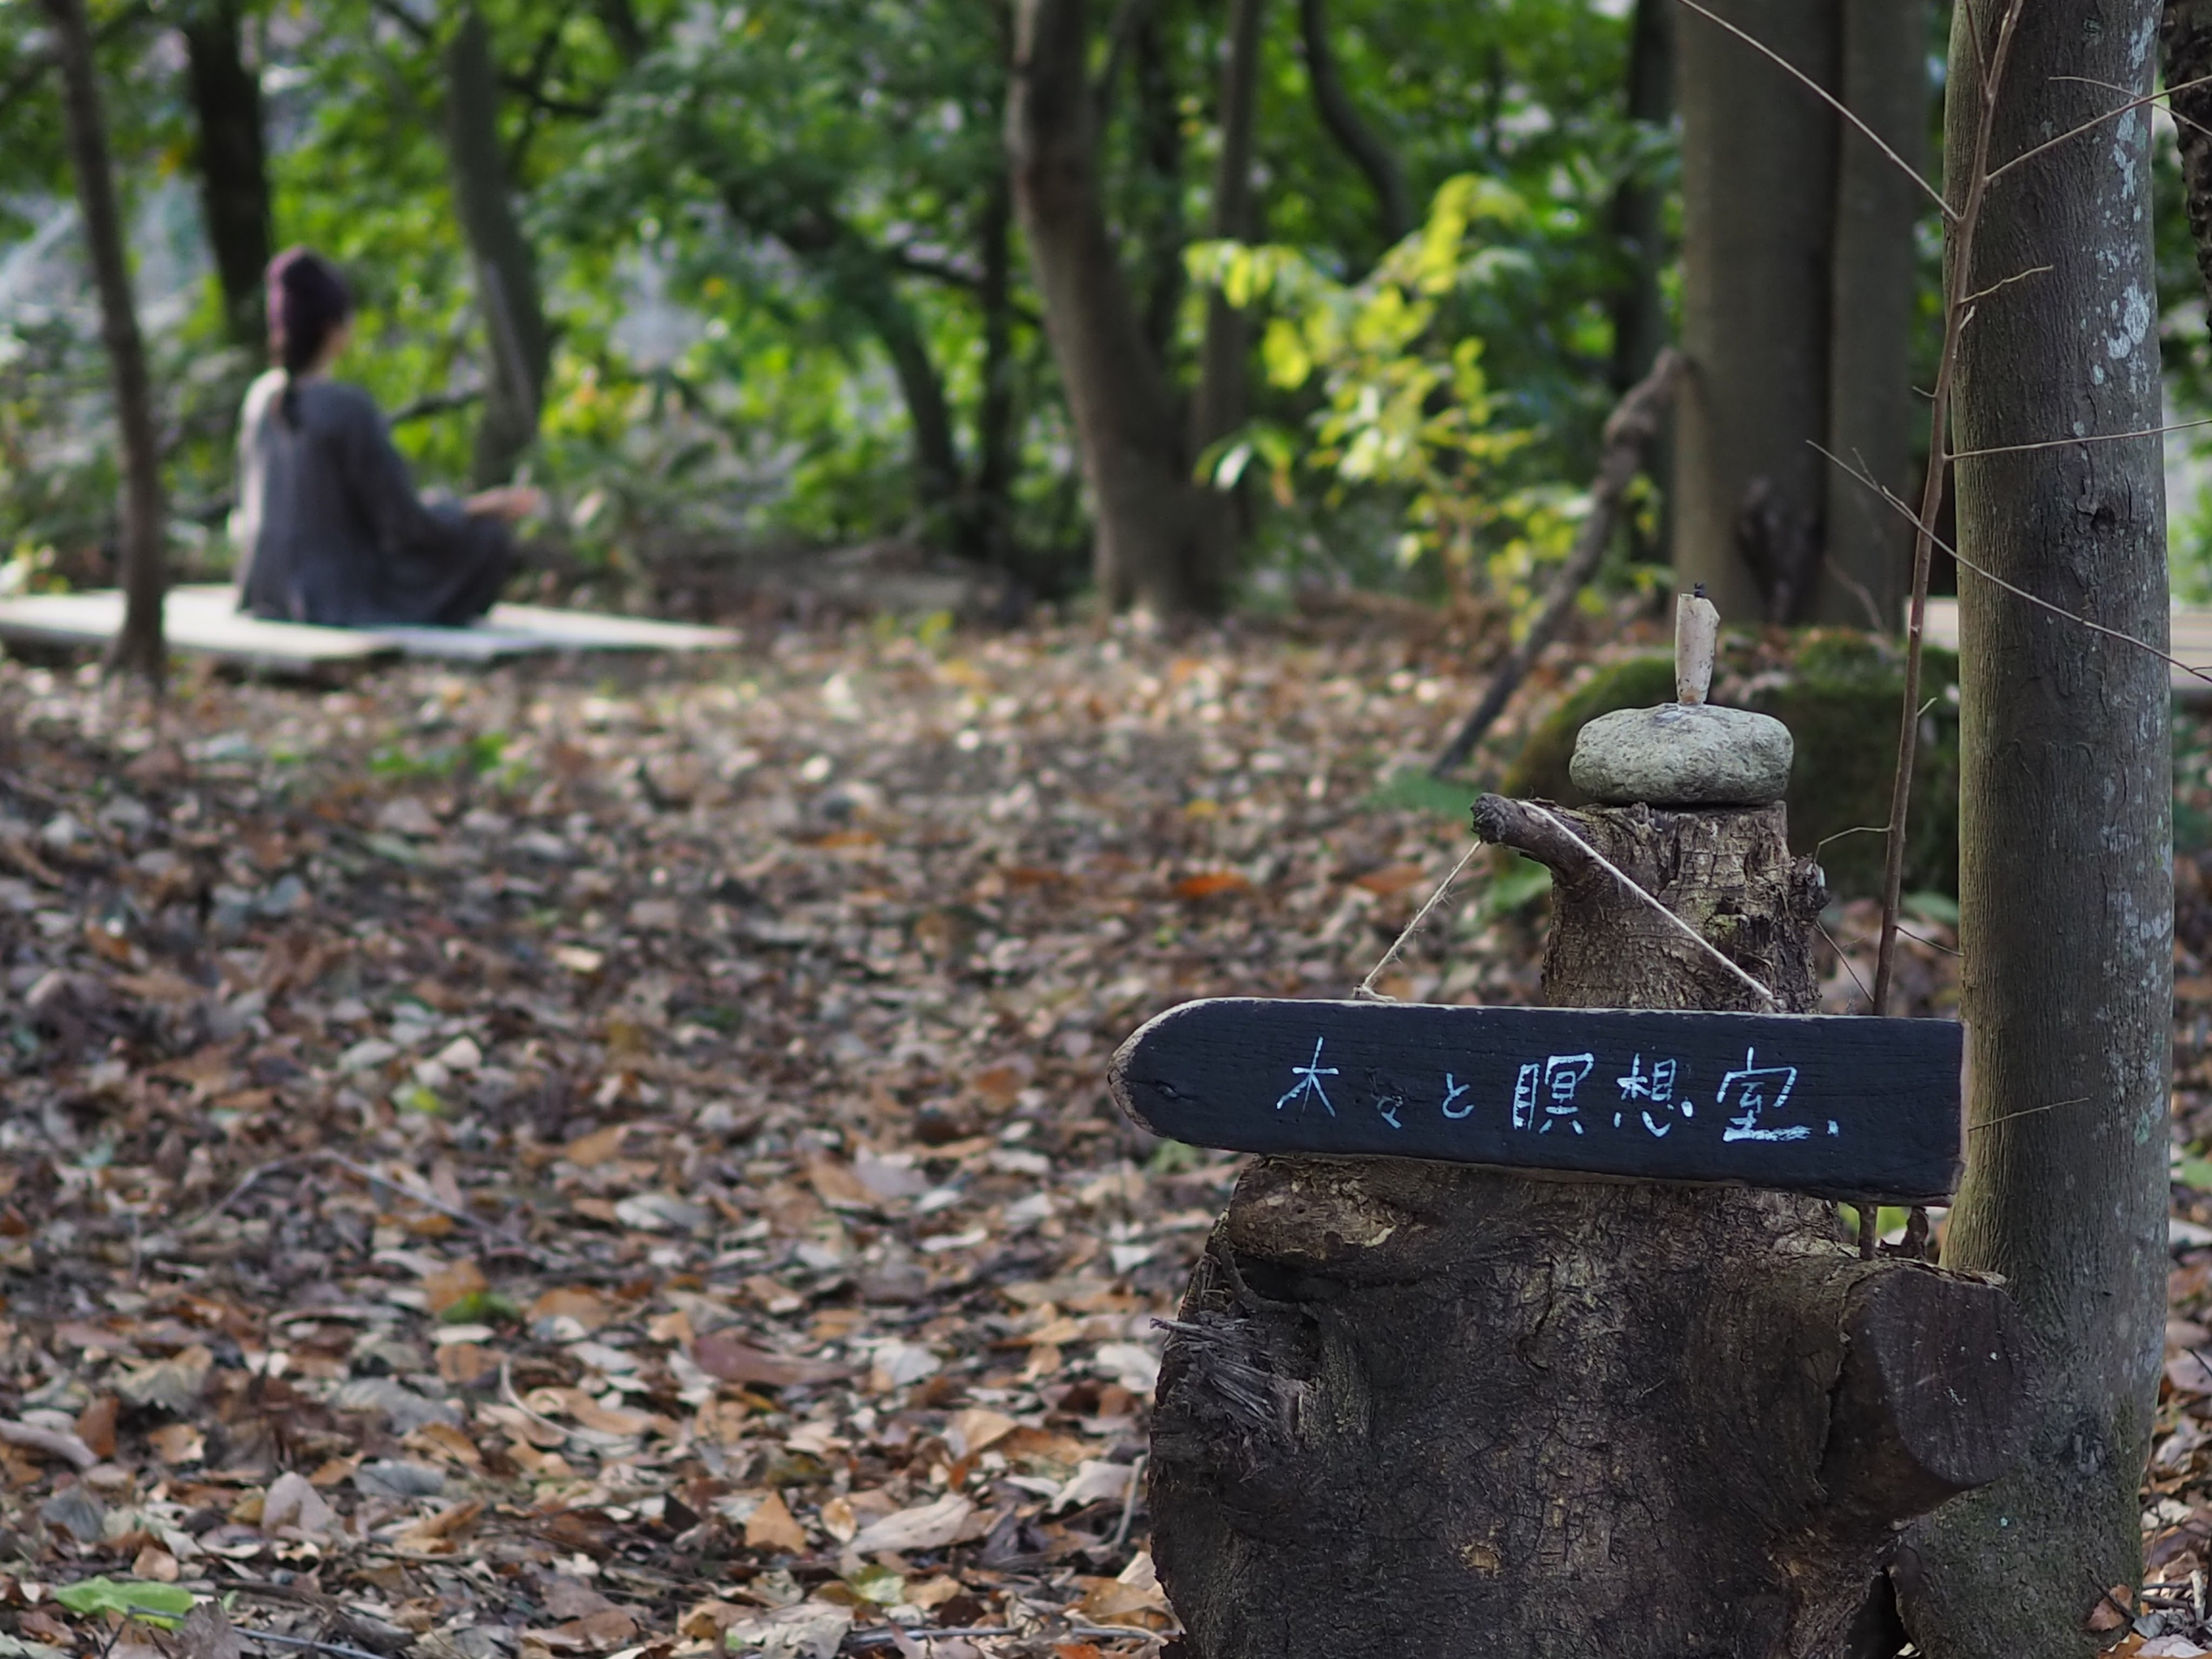 木々と瞑想室、